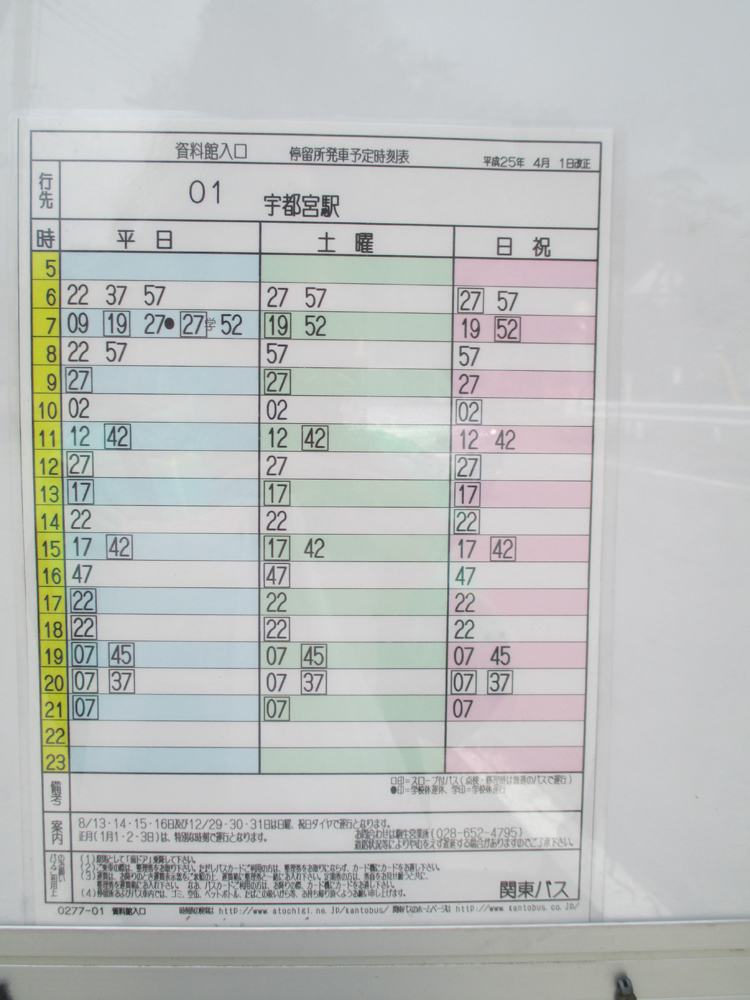 資料館入口 停留所発車予定時刻表 平成25年 4月 1日改正
行先 01 宇都宮駅
時 平日 土曜 日祝
5
6 22 37 57 27 57 27 57
7 09 19 27● 27学 52 19 52 19 52
8 22 57 57 57
9 27 27 27
10 02 02 02
11 12 42 12 42 12 42
12 27 27 27
13 17 17 17
14 22 22 22
15 17 42 17 42 17 42
16 47 47 47
17 22 22 22
18 22 22 22
19 07 45 07 45 07 45
20 07 37 07 37 07 37
21 07 07 07
22
23
備考 □印=スロープ付バス(点検・修理時は普通のバスで運行)
●印=学校休運休、学印=学校休運行
案内 8/13・14・15・16日及び12/29・30・31日は日曜、祝日ダイヤで運行となります。
正月(1月1・2・3日)は、特別な時刻で運行となります。 お問合わせは駒生営業所(028-652-4795)
道路状況等によりやむをえず遅延する場合がありますのでご了承下さい。
関東バス
0277-01 資料館入口 http://www.atochigi.ne.jp/kantobus/ http://www.kantobus.co.jp/